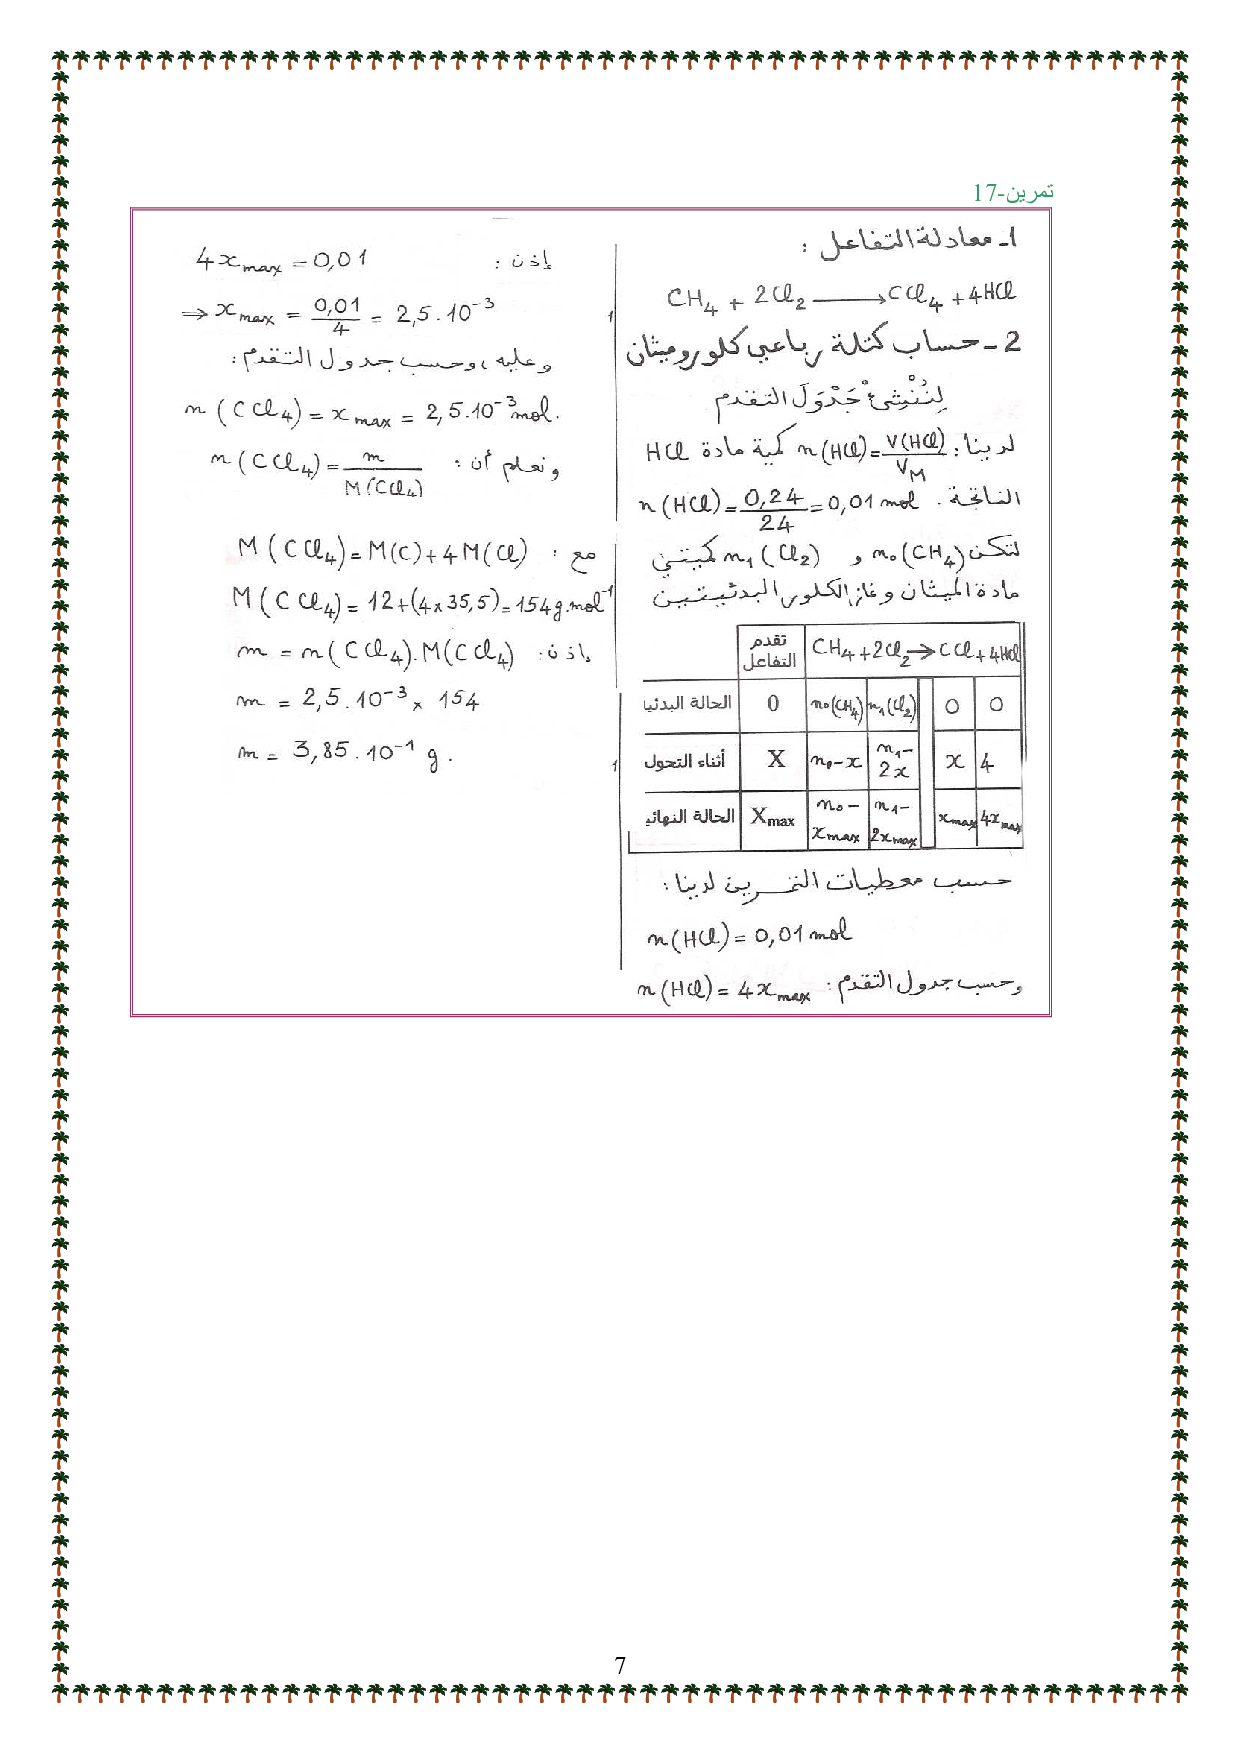 تمرين-17
1- معادلة التفاعل :
CH₄ + 2Cl₂ ⟶ CCl₄ + 4HCl
2 - حساب كتلة رباعي كلوروميثان
لِنُنْشِئْ جَدْوَلَ التقدم
لدينا: n(HCl) = V(HCl)/V_M كمية مادة HCl
الناتجة . n(HCl) = 0,24/24 = 0,01 mol
لتكن n₀(CH₄) و n₁(Cl₂) كميتي
مادة الميثان وغاز الكلور البدئيتين
تقدم التفاعل CH₄ + 2Cl₂ → CCl + 4HCl
الحالة البدئيا 0 n₀(CH₄) n₁(Cl₂) 0 0
أثناء التحول X n₀-x n₁-2x x 4
الحالة النهائي Xmax n₀-xmax n₁-2xmax xmax 4xmax
حسب معطيات التمرين لدينا :
n(HCl) = 0,01 mol
وحسب جدول التقدم : n(HCl) = 4xmax
إذن : 4xmax = 0,01
⇒ xmax = 0,01/4 = 2,5.10⁻³
وعليه ، وحسب جدول التقدم :
n(CCl₄) = xmax = 2,5.10⁻³ mol.
ونعلم أن : n(CCl₄) = m/M(CCl₄)
مع : M(CCl₄) = M(C) + 4M(Cl)
M(CCl₄) = 12+(4x35,5) = 154g.mol⁻¹
إذن : m = n(CCl₄).M(CCl₄)
m = 2,5.10⁻³ x 154
m = 3,85.10⁻¹ g.
7